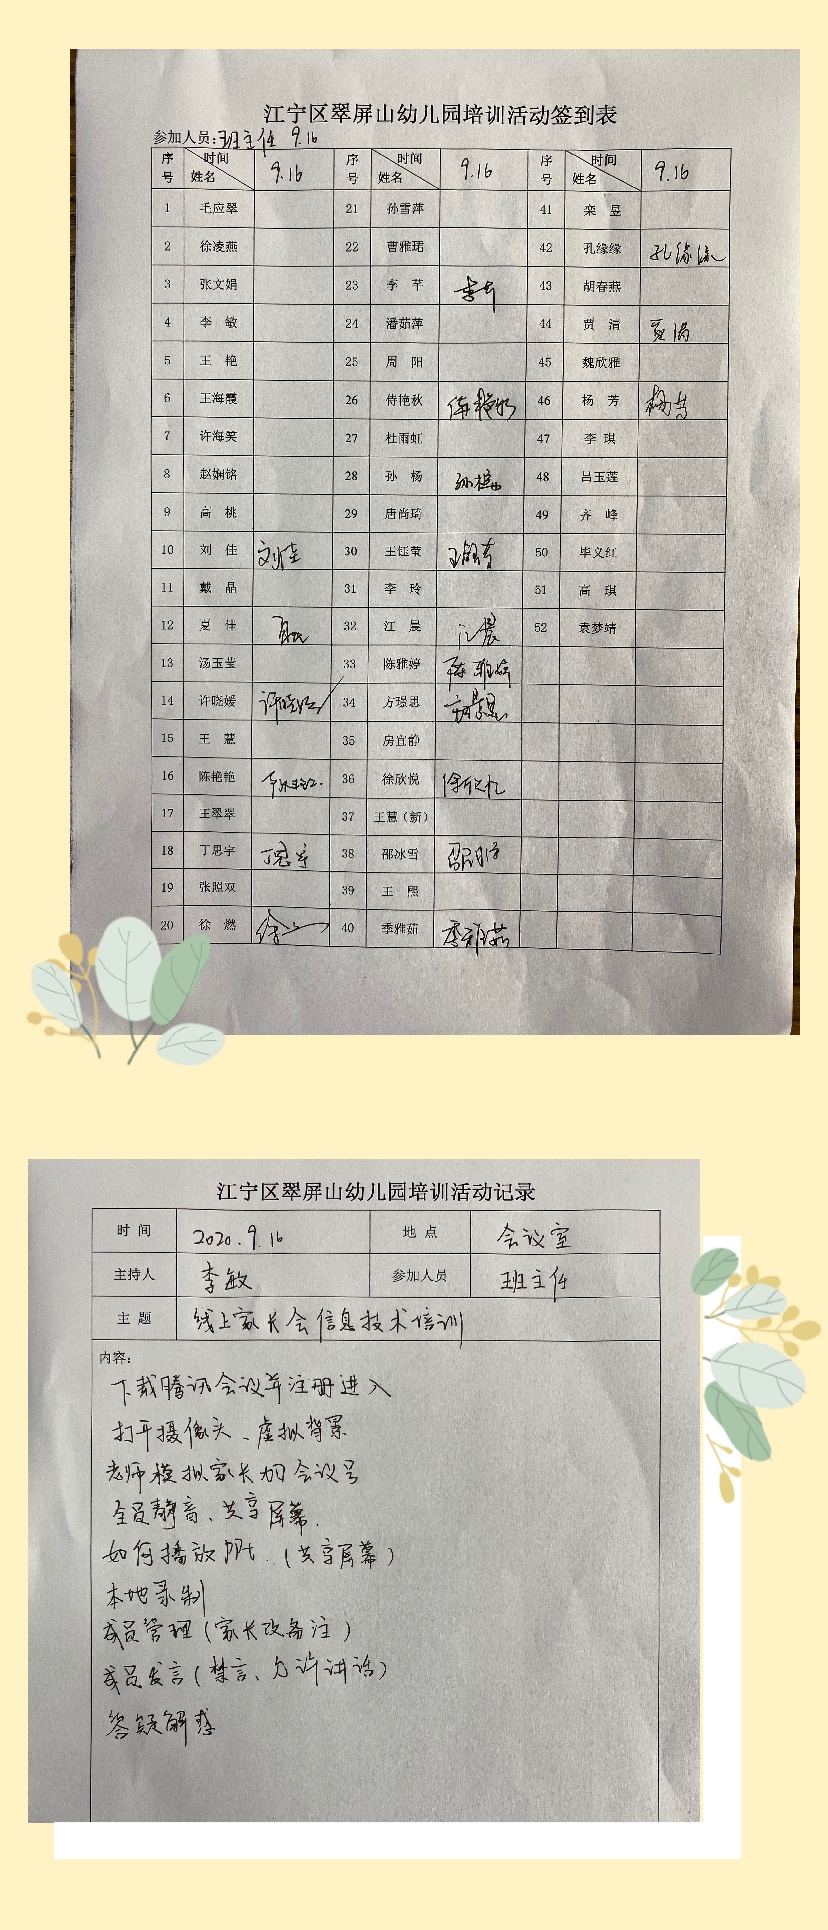 江宁区翠屏山幼儿园培训活动签到表
参加人员:班主任 9.16
序号 时间 姓名 9.16 序号 时间 姓名 9.16 序号 时间 姓名 9.16
1 毛应翠 21 孙雪萍 41 栾昱
2 徐凌燕 22 曹雅珺 42 孔缘缘 孔缘缘
3 张文娟 23 李芊 李芊 43 胡春燕
4 李敏 24 潘茹萍 44 贾涓 贾涓
5 王艳 25 周阳 45 魏欣雅
6 王海霞 26 侍艳秋 侍艳秋 46 杨芳 杨芳
7 许海笑 27 杜雨虹 47 李琪
8 赵娴铭 28 孙杨 孙杨 48 吕玉莲
9 高桃 29 唐尚琦 49 齐峰
10 刘佳 刘佳 30 王钰莹 王钰莹 50 毕义红
11 戴晶 31 李玲 51 高琪
12 夏佳 夏佳 32 江晨 江晨 52 袁梦婧
13 汤玉莹 33 陈雅婷 陈雅婷
14 许晓媛 许晓媛 34 方璟思 方璟思
15 王慧 35 房宜静
16 陈艳艳 陈艳艳 36 徐欣悦 徐欣悦
17 王翠翠 37 王慧（新）
18 丁思宇 丁思宇 38 邵冰雪 邵冰雪
19 张照双 39 王熙
20 徐燃 徐燃 40 季雅茹 季雅茹
江宁区翠屏山幼儿园培训活动记录
时间 2020.9.16 地点 会议室
主持人 李敏 参加人员 班主任
主题 线上家长会信息技术培训
内容:
下载腾讯会议并注册进入
打开摄像头、虚拟背景
老师模拟家长加会议号
全员静音、共享屏幕.
如何播放PPt.(共享屏幕)
本地录制
成员管理(家长改备注)
成员发言(禁言、允许讲话)
答疑解惑